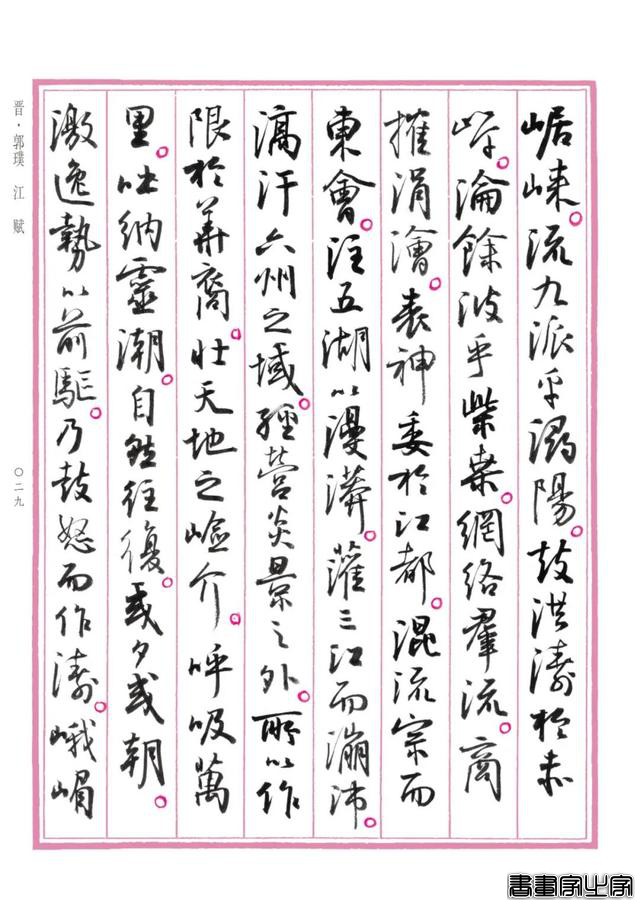 崌崍。流九派乎潯陽。鼓洪濤於赤
岸。淪餘波乎柴桑。網絡羣流。商
搉涓澮。表神委於江都。混流宗而
東會。注五湖以漫漭。灌三江而漰沛。
滈汗六州之域。經營炎景之外。所以作
限於華裔。壯天地之嶮介。呼吸萬
里。吐納靈潮。自然往復。或夕或朝。
激逸勢以前驅。乃鼓怒而作濤。峨嵋
晋·郭璞 江赋
〇二九
書畫家之家